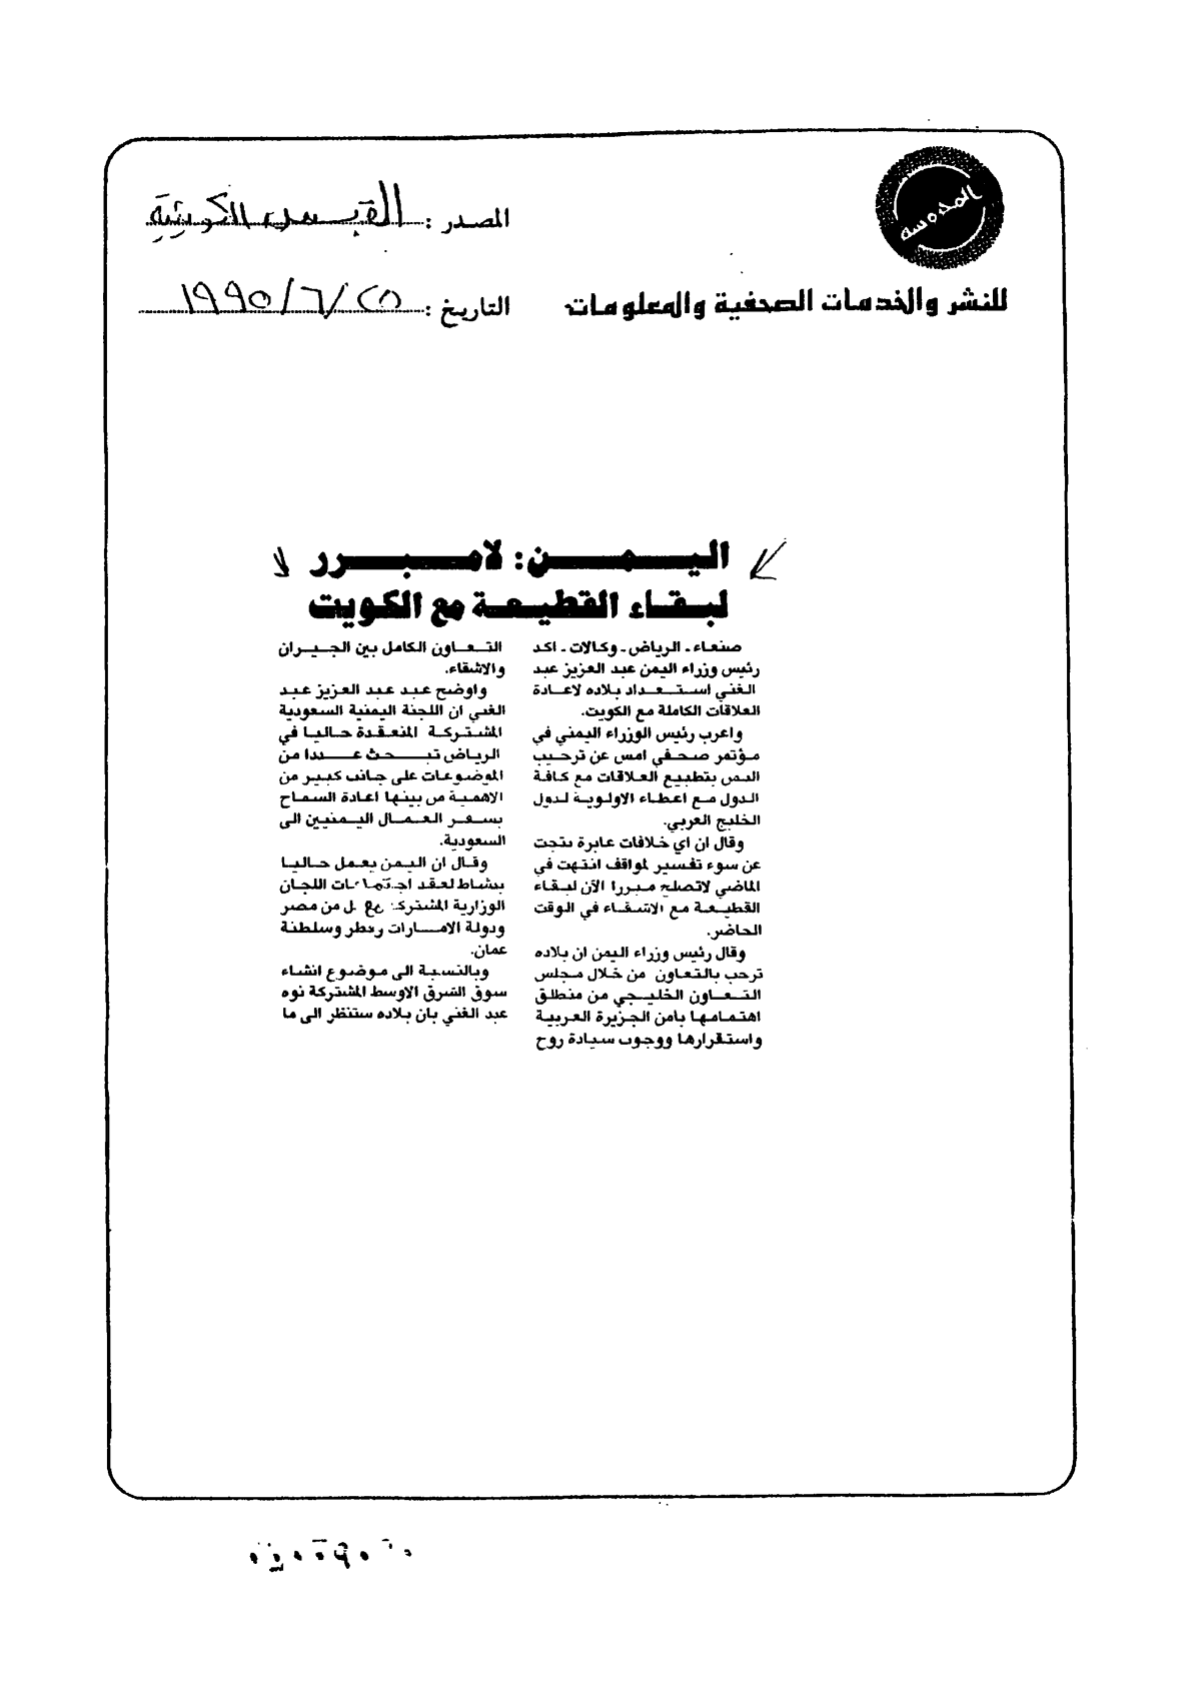 المحروسة
للنشر والخدمات الصحفية والمعلومات
المصدر : القبس الكويتية
التاريخ : ٢٥/٦/١٩٩٥
اليمن: لامبرر
لبقاء القطيعة مع الكويت
صنعاء ـ الرياض ـ وكالات ـ اكد
رئيس وزراء اليمن عبد العزيز عبد
الغني استعداد بلاده لاعادة
العلاقات الكاملة مع الكويت.
واعرب رئيس الوزراء اليمني في
مؤتمر صحفي امس عن ترحيب
اليمن بتطبيع العلاقات مع كافة
الدول مع اعطاء الاولوية لدول
الخليج العربي.
وقال ان اي خلافات عابرة نتجت
عن سوء تفسير لمواقف انتهت في
الماضي لاتصلح مبررا الآن لبقاء
القطيعة مع الاشقاء في الوقت
الحاضر.
وقال رئيس وزراء اليمن ان بلاده
ترحب بالتعاون من خلال مجلس
التعاون الخليجي من منطلق
اهتمامها بامن الجزيرة العربية
واستقرارها ووجوب سيادة روح
التعاون الكامل بين الجيران
والاشقاء.
واوضح عبد عبد العزيز عبد
الغني ان اللجنة اليمنية السعودية
المشتركة المنعقدة حاليا في
الرياض تبحث عددا من
الموضوعات على جانب كبير من
الاهمية من بينها اعادة السماح
بسفر العمال اليمنيين الى
السعودية.
وقال ان اليمن يعمل حاليا
بنشاط لعقد اجتماعات اللجان
الوزارية المشتركة مع كل من مصر
ودولة الامارات وقطر وسلطنة
عمان.
وبالنسبة الى موضوع انشاء
سوق الشرق الاوسط المشتركة نوه
عبد الغني بان بلاده ستنظر الى ما